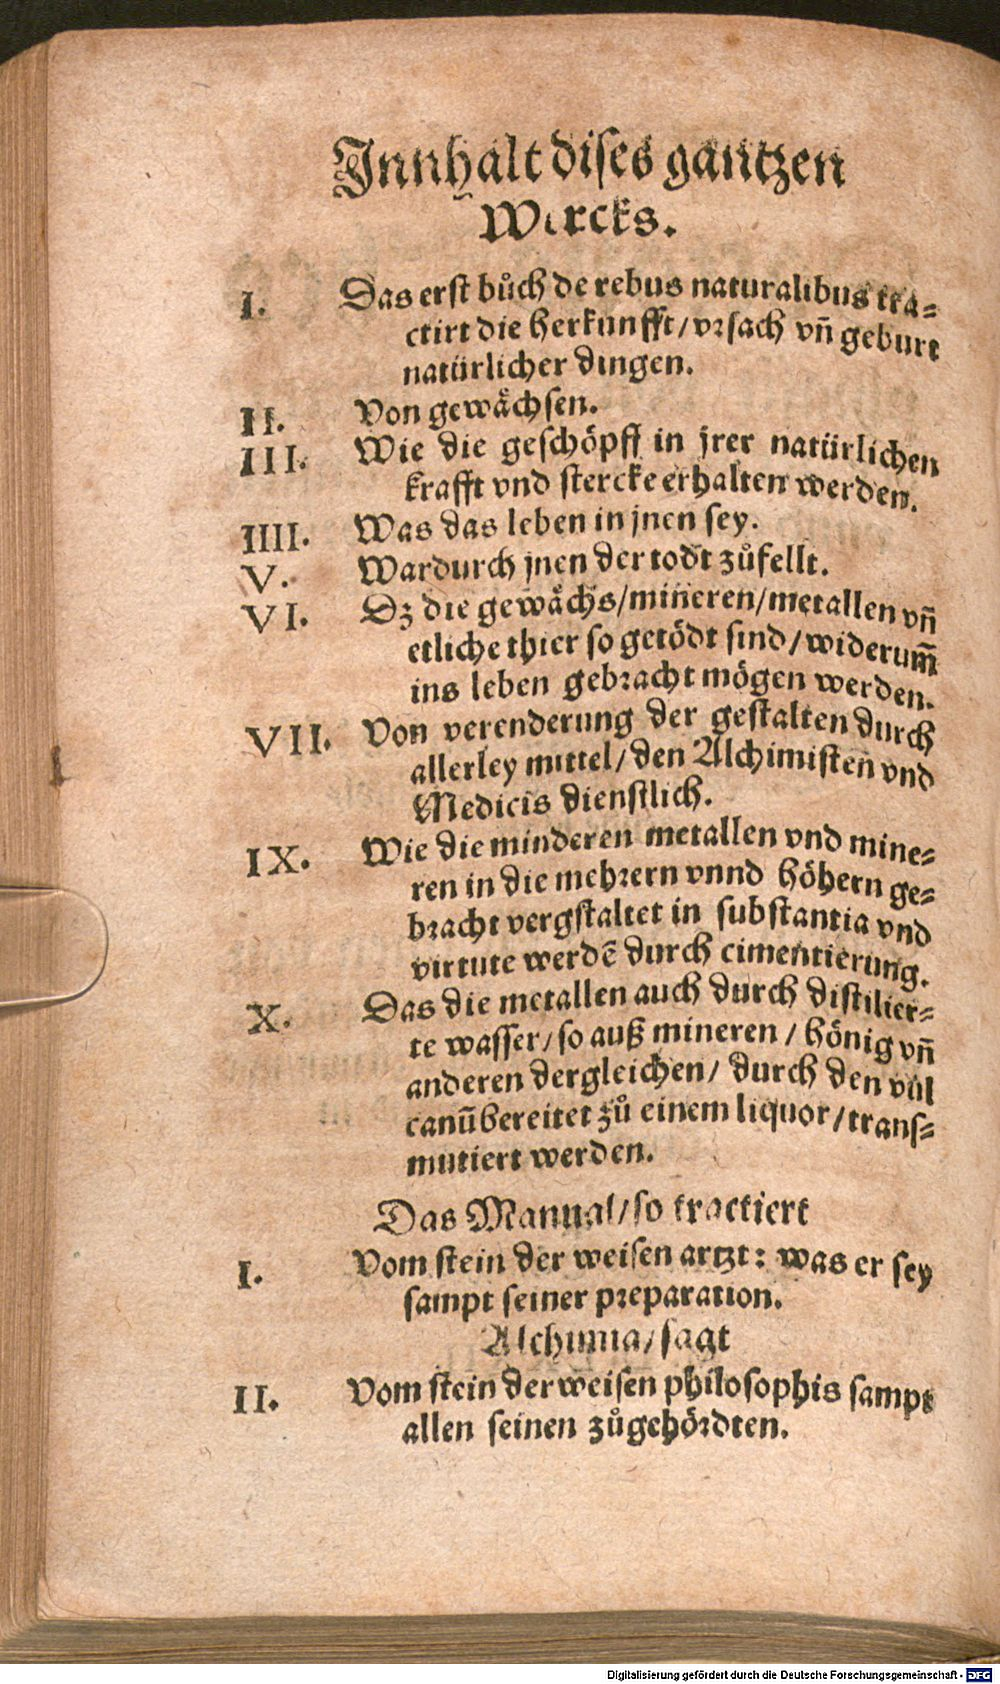 Innhalt dises gantzen
Wercks.
I. Das erst bůch de rebus naturalibus tra⸗
ctirt die herkunfft/vrsach vñ geburt
natürlicher dingen.
II. Von gewåchsen.
III. Wie die geschöpff in jrer natürlichen
krafft vnd stercke erhalten werden.
IIII. Was das leben in jnen sey.
V. Wardurch jnen der todt zůfellt.
VI. Dz die gewåchs/mineren/metallen vñ
etliche thier so getödt sind/widerum̃
ins leben gebracht mögen werden.
VII. Von verenderung der gestalten durch
allerley mittel/den Alchimisten vnd
Medicis dienstlich.
IX. Wie die minderen metallen vnd mine⸗
ren in die mehrern vnnd höhern ge⸗
bracht vergstaltet in substantia vnd
virtute werdẽ durch cimentierung.
X. Das die metallen auch durch distilier⸗
te wasser/so auß mineren/hönig vñ
anderen dergleichen/durch den vul
canũ bereitet zů einem liquor/trans⸗
mutiert werden.
Das Manual/so tractiert
I. Vom stein der weisen artzt: was er sey
sampt seiner preparation.
Alchimia/sagt
II. Vom stein der weisen philosophis sampt
allen seinen zůgehördten.
Digitalisierung gefördert durch die Deutsche Forschungsgemeinschaft - DFG